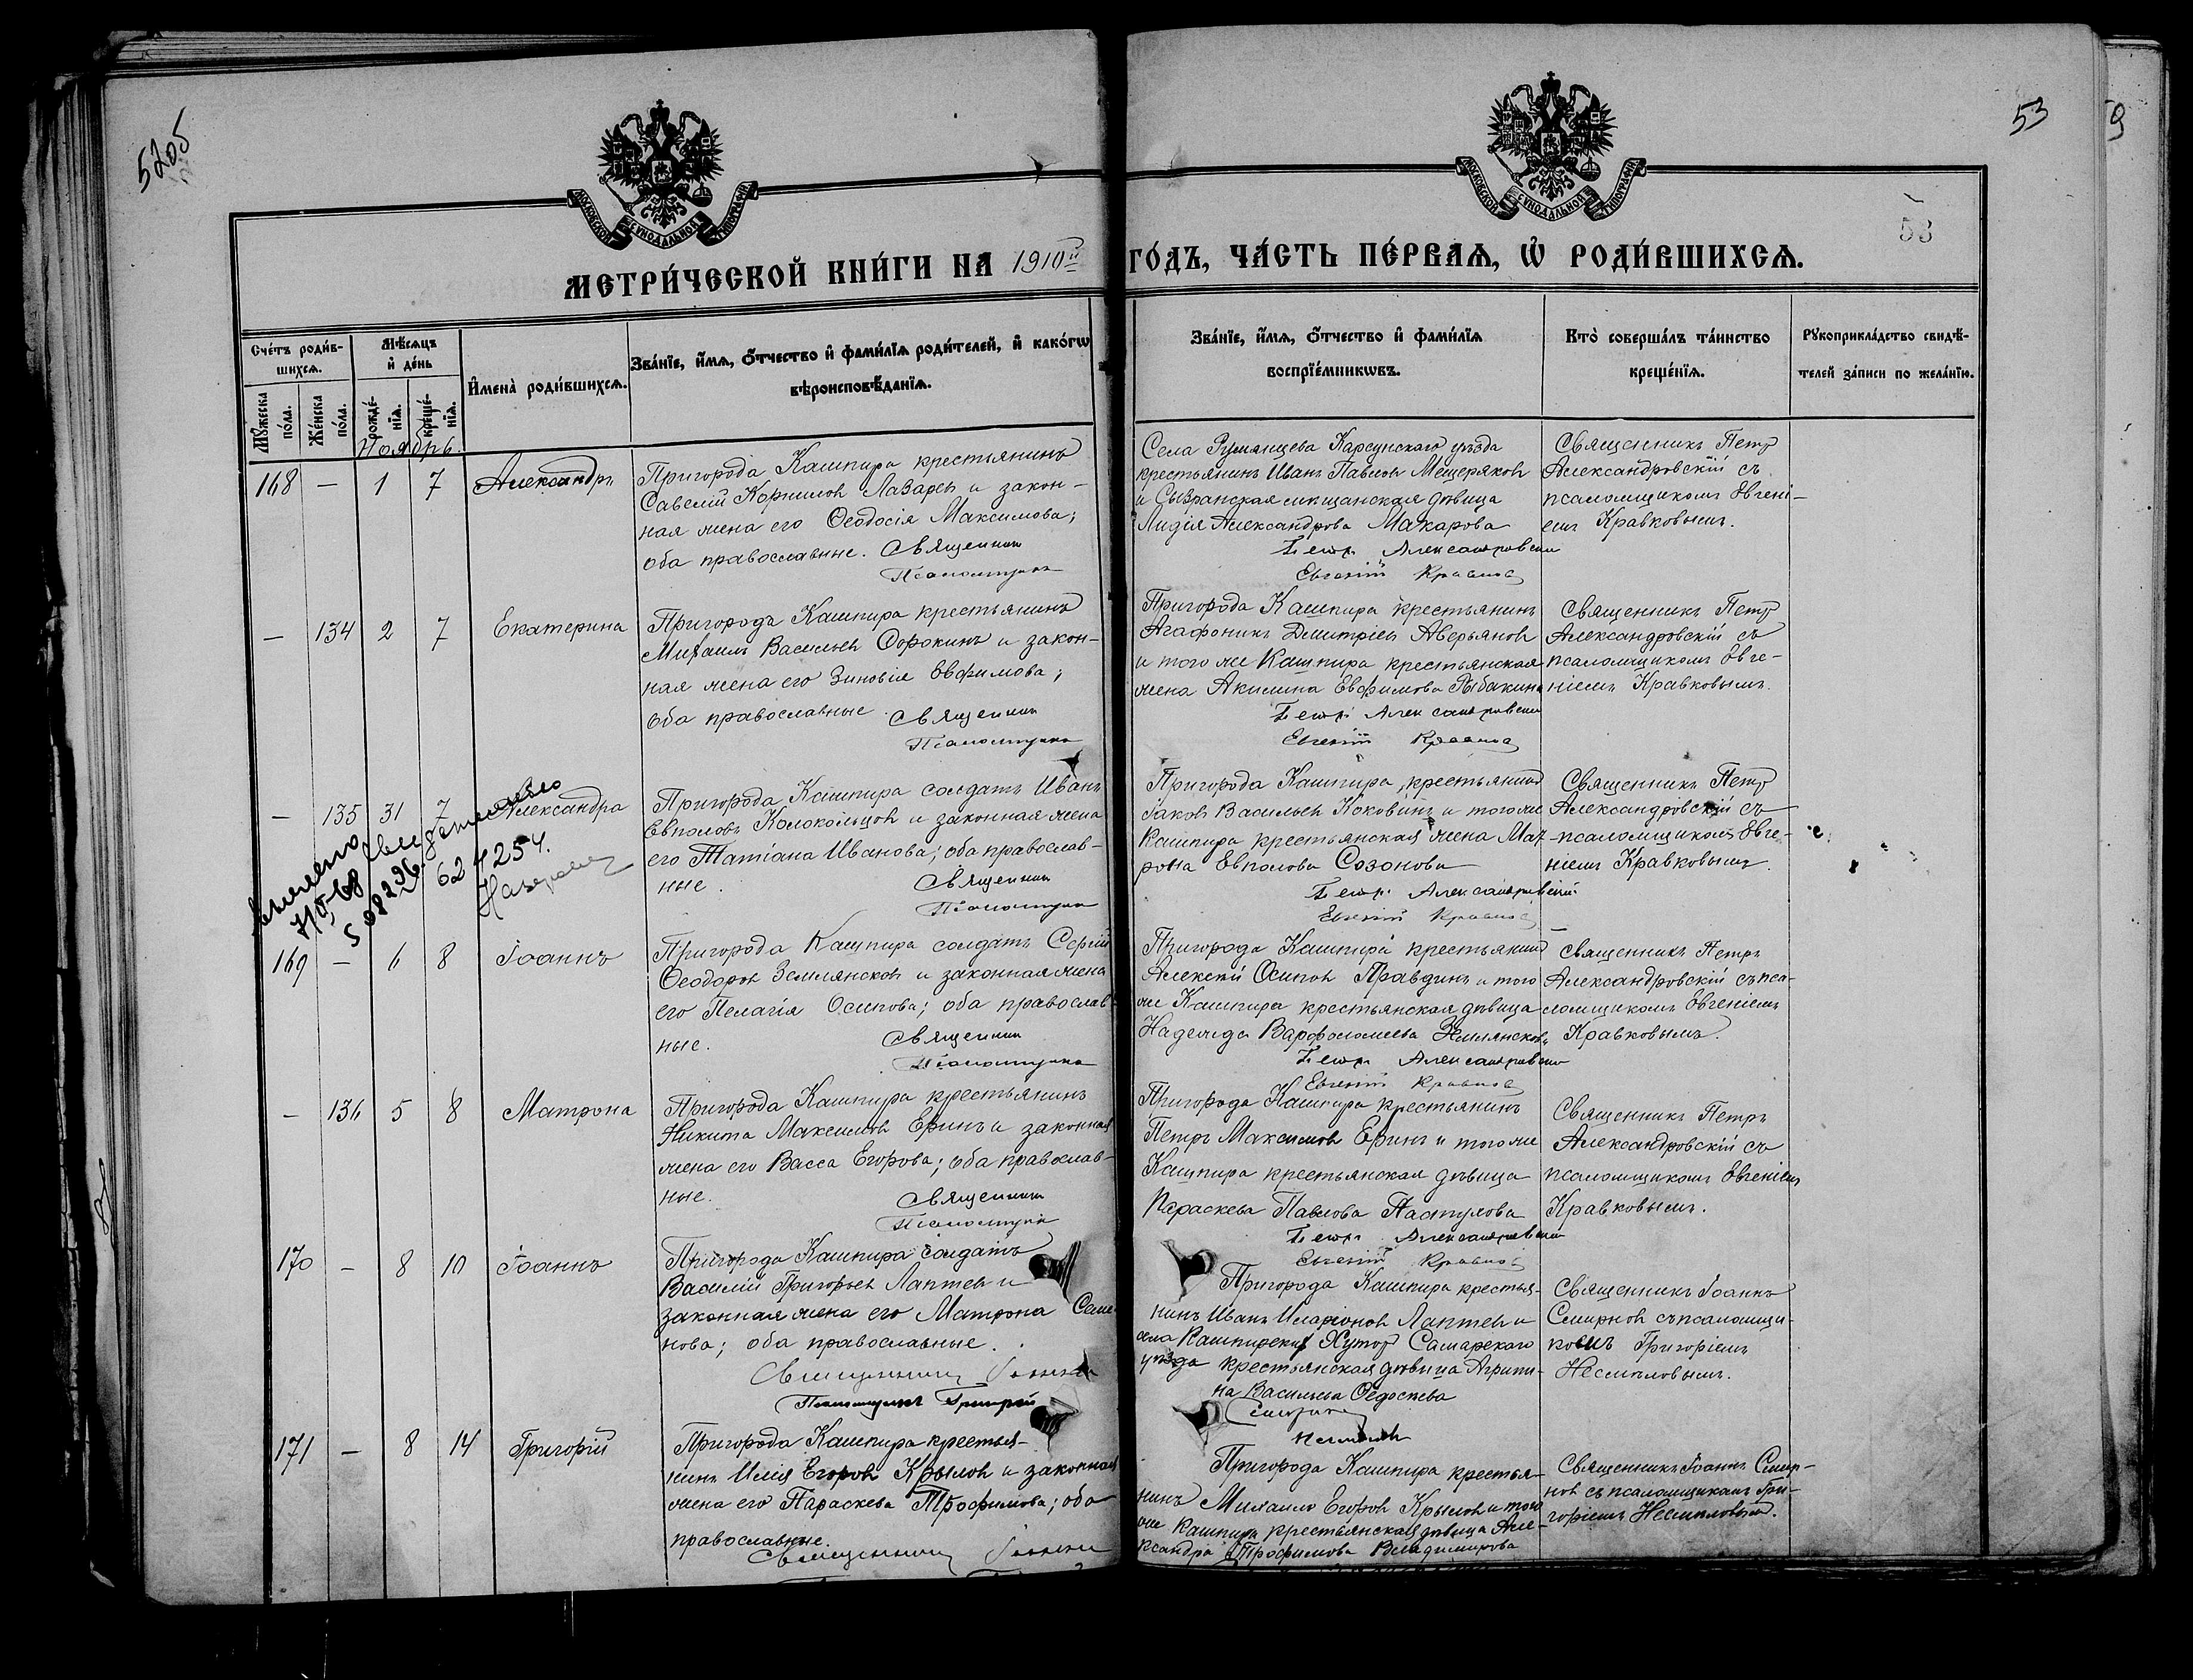 5205
53
53
МОСКОВСКОЙ СѴНОДАЛЬНОЙ ТИПОГРАФІИ
МОСКОВСКОЙ СѴНОДАЛЬНОЙ ТИПОГРАФІИ
МЕТРИ́ЧЕСКОЙ КНИ́ГИ НА 1910й ГО́ДЪ, ЧА́СТЬ ПЕ́РВАЯ, Ѡ҆ РОДИ́ВШИХСЯ.
Сче́тъ роди́в-
шихся.
Мꙋ́жеска
по́ла.
Же́нска
по́ла.
Мѣ́сяцъ
и҆ де́нь
рожде́-
нїя.
креще́-
нїя.
И҆мена̀ роди́вшихся.
Зва́нїе, и҆́мя, ѻ҆́тчество и҆ фами́лїя роди́телей, и҆ како́гѡ
вѣроисповѣ́данїя.
Зва́нїе, и҆́мя, ѻ҆́тчество и҆ фами́лїя
воспрїе́мникѡвъ.
Кто̀ соверша́лъ та́инство
креще́нїя.
Рꙋкоприкла́дство свидѣ́-
телей за́писи по жела́нїю.
Ноябрь.
168 — 1 7 Александръ
Пригорода Кашпира крестьянинъ
Савелій Корниловъ Лазарев и закон-
ная жена его Ѳеодосія Максимова;
оба православные. Священникъ
Псаломщикъ
Села Румянцева Карсунскаго уѣзда
крестьянинъ Иванъ Павловъ Мещеряковъ
и Сызранская мѣщанская дѣвица
Лидія Александрова Макарова
Петръ Александровскій
Евгеній Кравковъ
Священникъ Петръ
Александровскій съ
псаломщикомъ Евгені-
емъ Кравковымъ.
— 134 2 7 Екатерина
Пригорода Кашпира крестьянинъ
Михаилъ Васильевъ Сорокинъ и закон-
ная жена его Зиновія Евфимова;
оба православные. Священникъ
Псаломщикъ
Пригорода Кашпира крестьянинъ
Агафоникъ Дмитріевъ Аверьяновъ
и того же Кашпира крестьянская
жена Акилина Евфимова Рыбакина
Петръ Александровскій
Евгеній Кравковъ
Священникъ Петръ
Александровскій съ
псаломщикомъ Евге-
ніемъ Кравковымъ.
— 135 31 7 Александра
508296 624254.
Пригорода Кашпира солдатъ Иванъ
Евполовъ Колокольцовъ и законная жена
его Татіана Иванова; оба православ-
ные. Священникъ
Псаломщикъ
Пригорода Кашпира, крестьянинъ
Іаковъ Васильевъ Коковинъ и того же
Кашпира крестьянская жена Мат-
рона Евполова Созонова
Петръ Александровскій
Евгеній Кравковъ
Священникъ Петръ
Александровскій съ
псаломщикомъ Евге-
ніемъ Кравковымъ.
169 — 6 8 Іоаннъ
Пригорода Кашпира солдатъ Сергій
Ѳеодоровъ Землянсковъ и законная жена
его Пелагія Осипова; оба православ-
ные. Священникъ
Псаломщикъ
Пригорода Кашпира крестьянинъ
Алексій Осиповъ Правдинъ и того
же Кашпира крестьянская дѣвица
Надежда Варфоломеева Землянскова
Петръ Александровскій
Евгеній Кравковъ
Священникъ Петръ
Александровскій съ пса-
ломщикомъ Евгеніемъ
Кравковымъ.
— 136 5 8 Матрона
Пригорода Кашпира крестьянинъ
Никита Максимовъ Еринъ и законная
жена его Васса Егорова; оба православ-
ные. Священникъ
Псаломщикъ
Пригорода Кашпира крестьянинъ
Петръ Максимовъ Еринъ и того же
Кашпира крестьянская дѣвица
Параскева Павлова Пастухова
Петръ Александровскій
Евгеній Кравковъ
Священникъ Петръ
Александровскій съ
псаломщикомъ Евгеніемъ
Кравковымъ.
170 — 8 10 Іоаннъ
Пригорода Кашпира солдатъ
Василій Григорьевъ Лаптевъ и
законная жена его Матрона Семе-
нова; оба православные.
Священникъ Іоаннъ
Псаломщикъ Григорій
Пригорода Кашпира крестья-
нинъ Иванъ Иларіоновъ Лаптевъ и
села Кашпирскій Хуторъ Самарскаго
уѣзда крестьянская дѣвица Агрипи-
на Васильева Ѳедосѣева
Смирновъ
Несмѣловъ
Священникъ Іоаннъ
Смирновъ съ псаломщи-
комъ Григоріемъ
Несмѣловымъ.
171 — 8 14 Григорій
Пригорода Кашпира крестья-
нинъ Илія Егоровъ Крыловъ и законная
жена его Параскева Трофимова; оба
православные.
Священникъ Іоаннъ
Пригорода Кашпира крестья-
нинъ Михаилъ Егоровъ Крыловъ и того
же Кашпира крестьянская дѣвица Але-
ксандра Трофимова Владимирова
Священникъ Іоаннъ Смир-
новъ съ псаломщикомъ Гри-
горіемъ Несмѣловымъ.